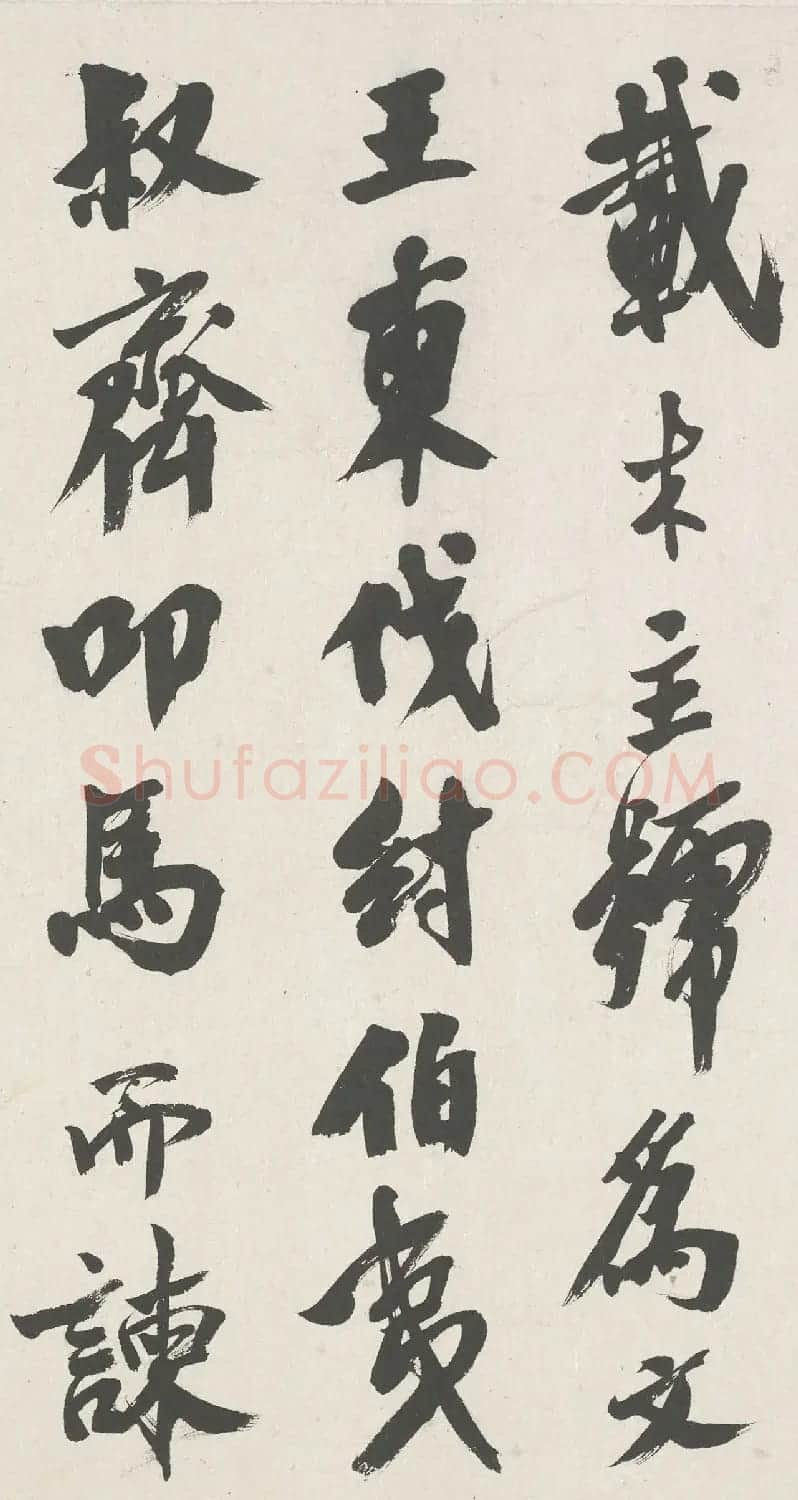 載木主號為文
王東伐紂伯夷
叔齊叩馬而諫
Shufaziliao.COM